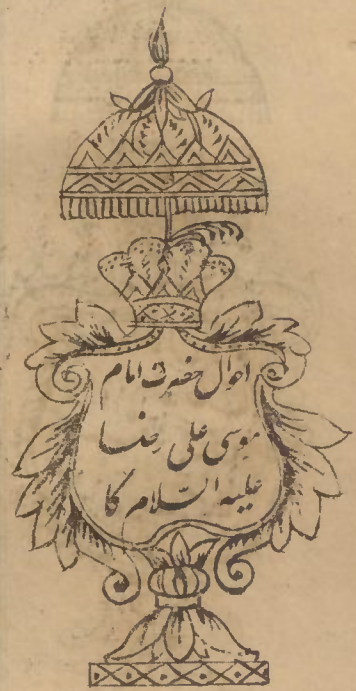 احوال حضرت امام
موسی علی رضا
علیہ السّلام کا